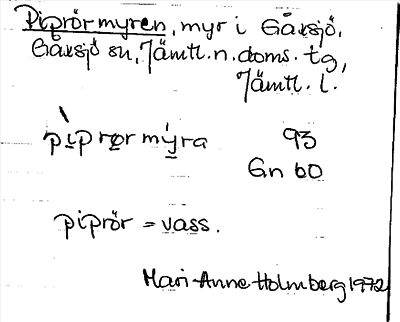 Piprörmyren, myr i Gåxsjö,
Gåxsjö sn, Jämtl. n. doms. tg,
Jämtl. l.
pìprørmy̱ra 93
Gn 60
piprör = vass.
Mari-Anne Holmberg 1972